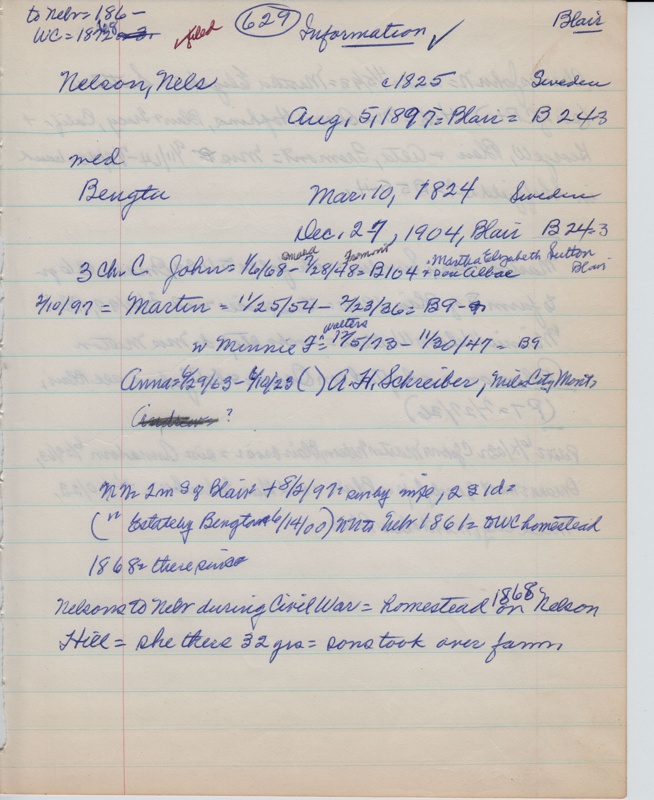 to Nebr = 186-
WC = 1872 68
filed
629
Information ✓
Blair
Nelson, Nels c1825 Sweden
Aug, 5, 1897 = Blair = B 24-3
med
Bengta Mar. 10, 1824 Sweden
Dec. 27, 1904, Blair B 24-3
3 Ch. C. John = 1/6/68 - 7/28/48 = B104 = Martha Elizabeth Sutton
omaha Fremont
Blair
2/10/97 = Martin = 11/25/54 - 2/23/36 = B9 -
w Minnie F = 12/5/73 - 11/30/47 = B9
Walters
Anna = 6/29/63 - 6/10/23 ( ) A.H. Schreiber, Miles City Mont.
Andrew = ?
NN 2m S of Blair + 8/5/97 = 2 s 1 d =
(" Estate by Bengta 6/14/00) to Nebr 1861 = to WC homestead
1868 = there since
Nelsons to Nebr during Civil War = homestead 1868 on Nelson
Hill = she there 32 yrs = sons took over farm